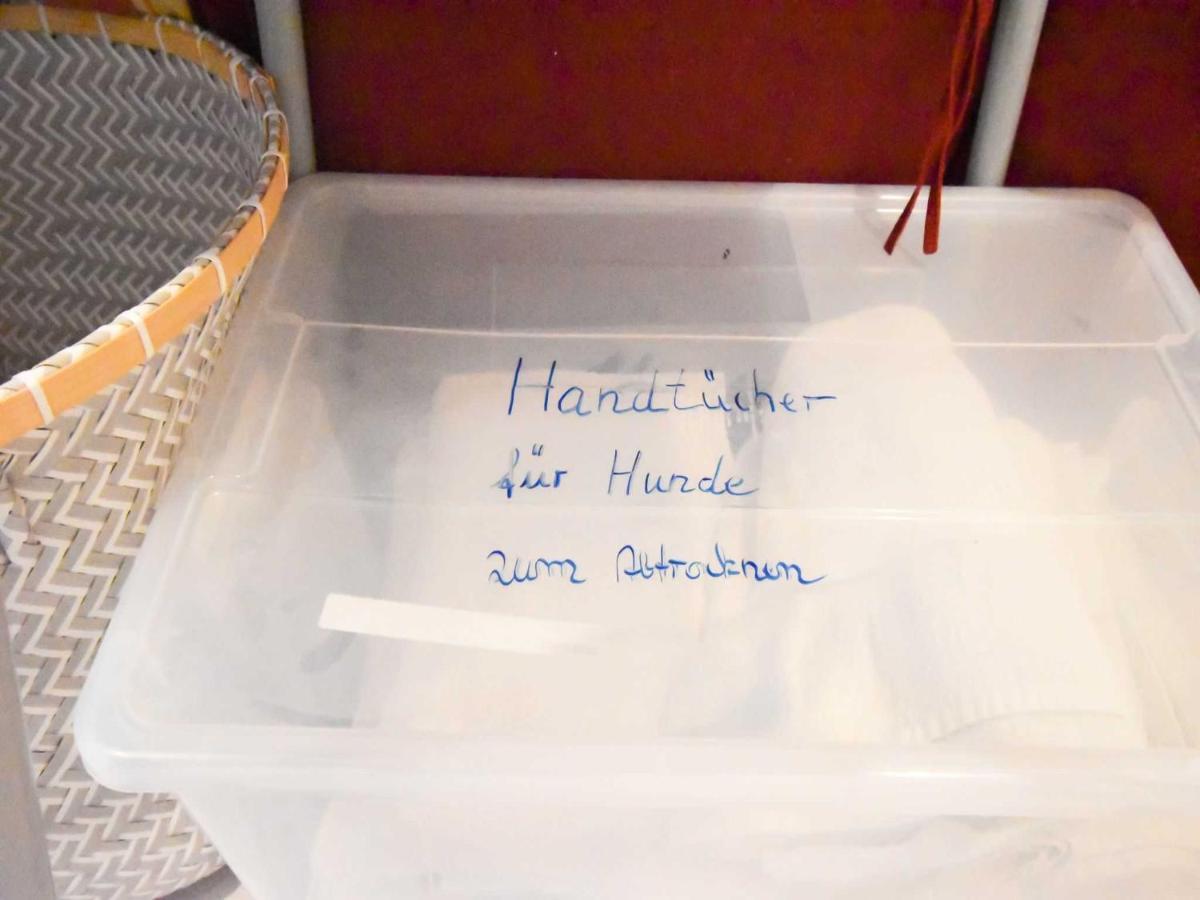 Handtücher
für Hunde
zum Abtrocknen